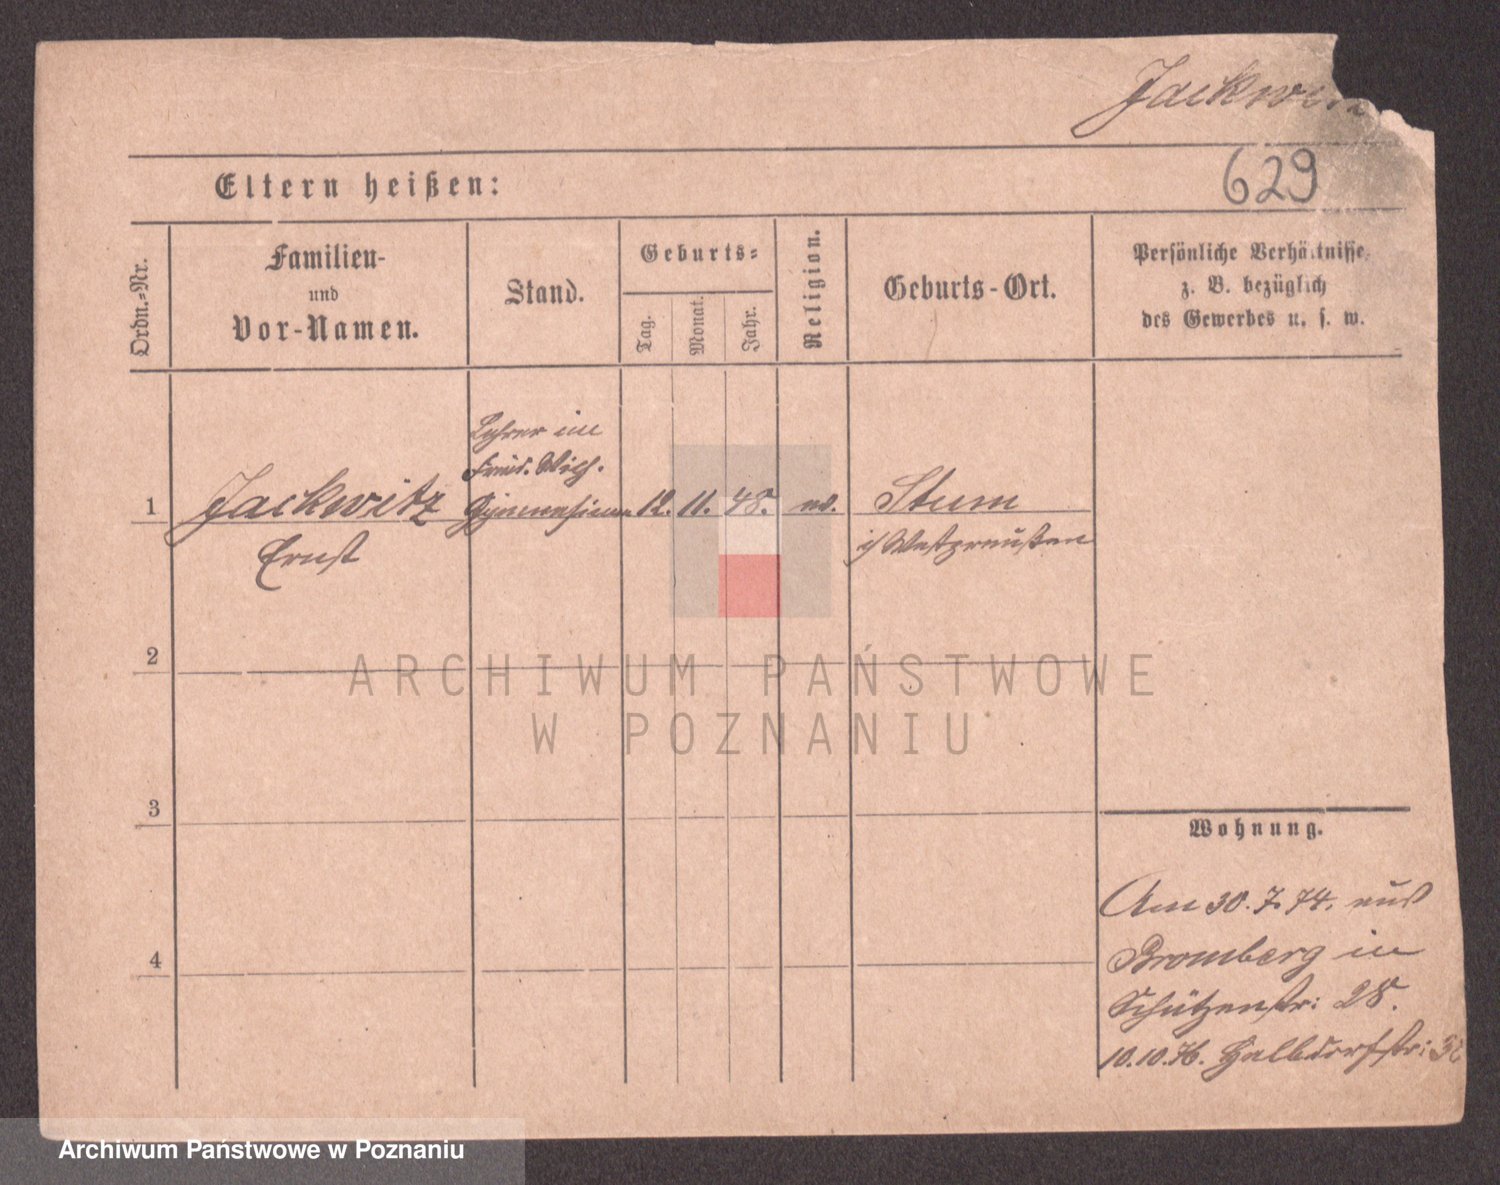 Jackwitz
629
Eltern heißen:
Ordn.-Nr.
Familien-
und
Vor-Namen.
Stand.
Geburts-
Tag.
Monat.
Jahr.
Religion.
Geburts-Ort.
Persönliche Verhältnisse,
z. B. bezüglich
des Gewerbes u. s. w.
Lehrer im
Fried. Wilh.
1 Jackwitz Gymnasium 12. 11. 48. ev. Stum
Ernst
i/ Westpreußen
2
ARCHIWUM PAŃSTWOWE
W POZNANIU
3
Wohnung.
4
Am 30. 7. 74. aus
Bromberg in
Schützenstr: 28.
10.10.76. Halbdorfstr:
Archiwum Państwowe w Poznaniu